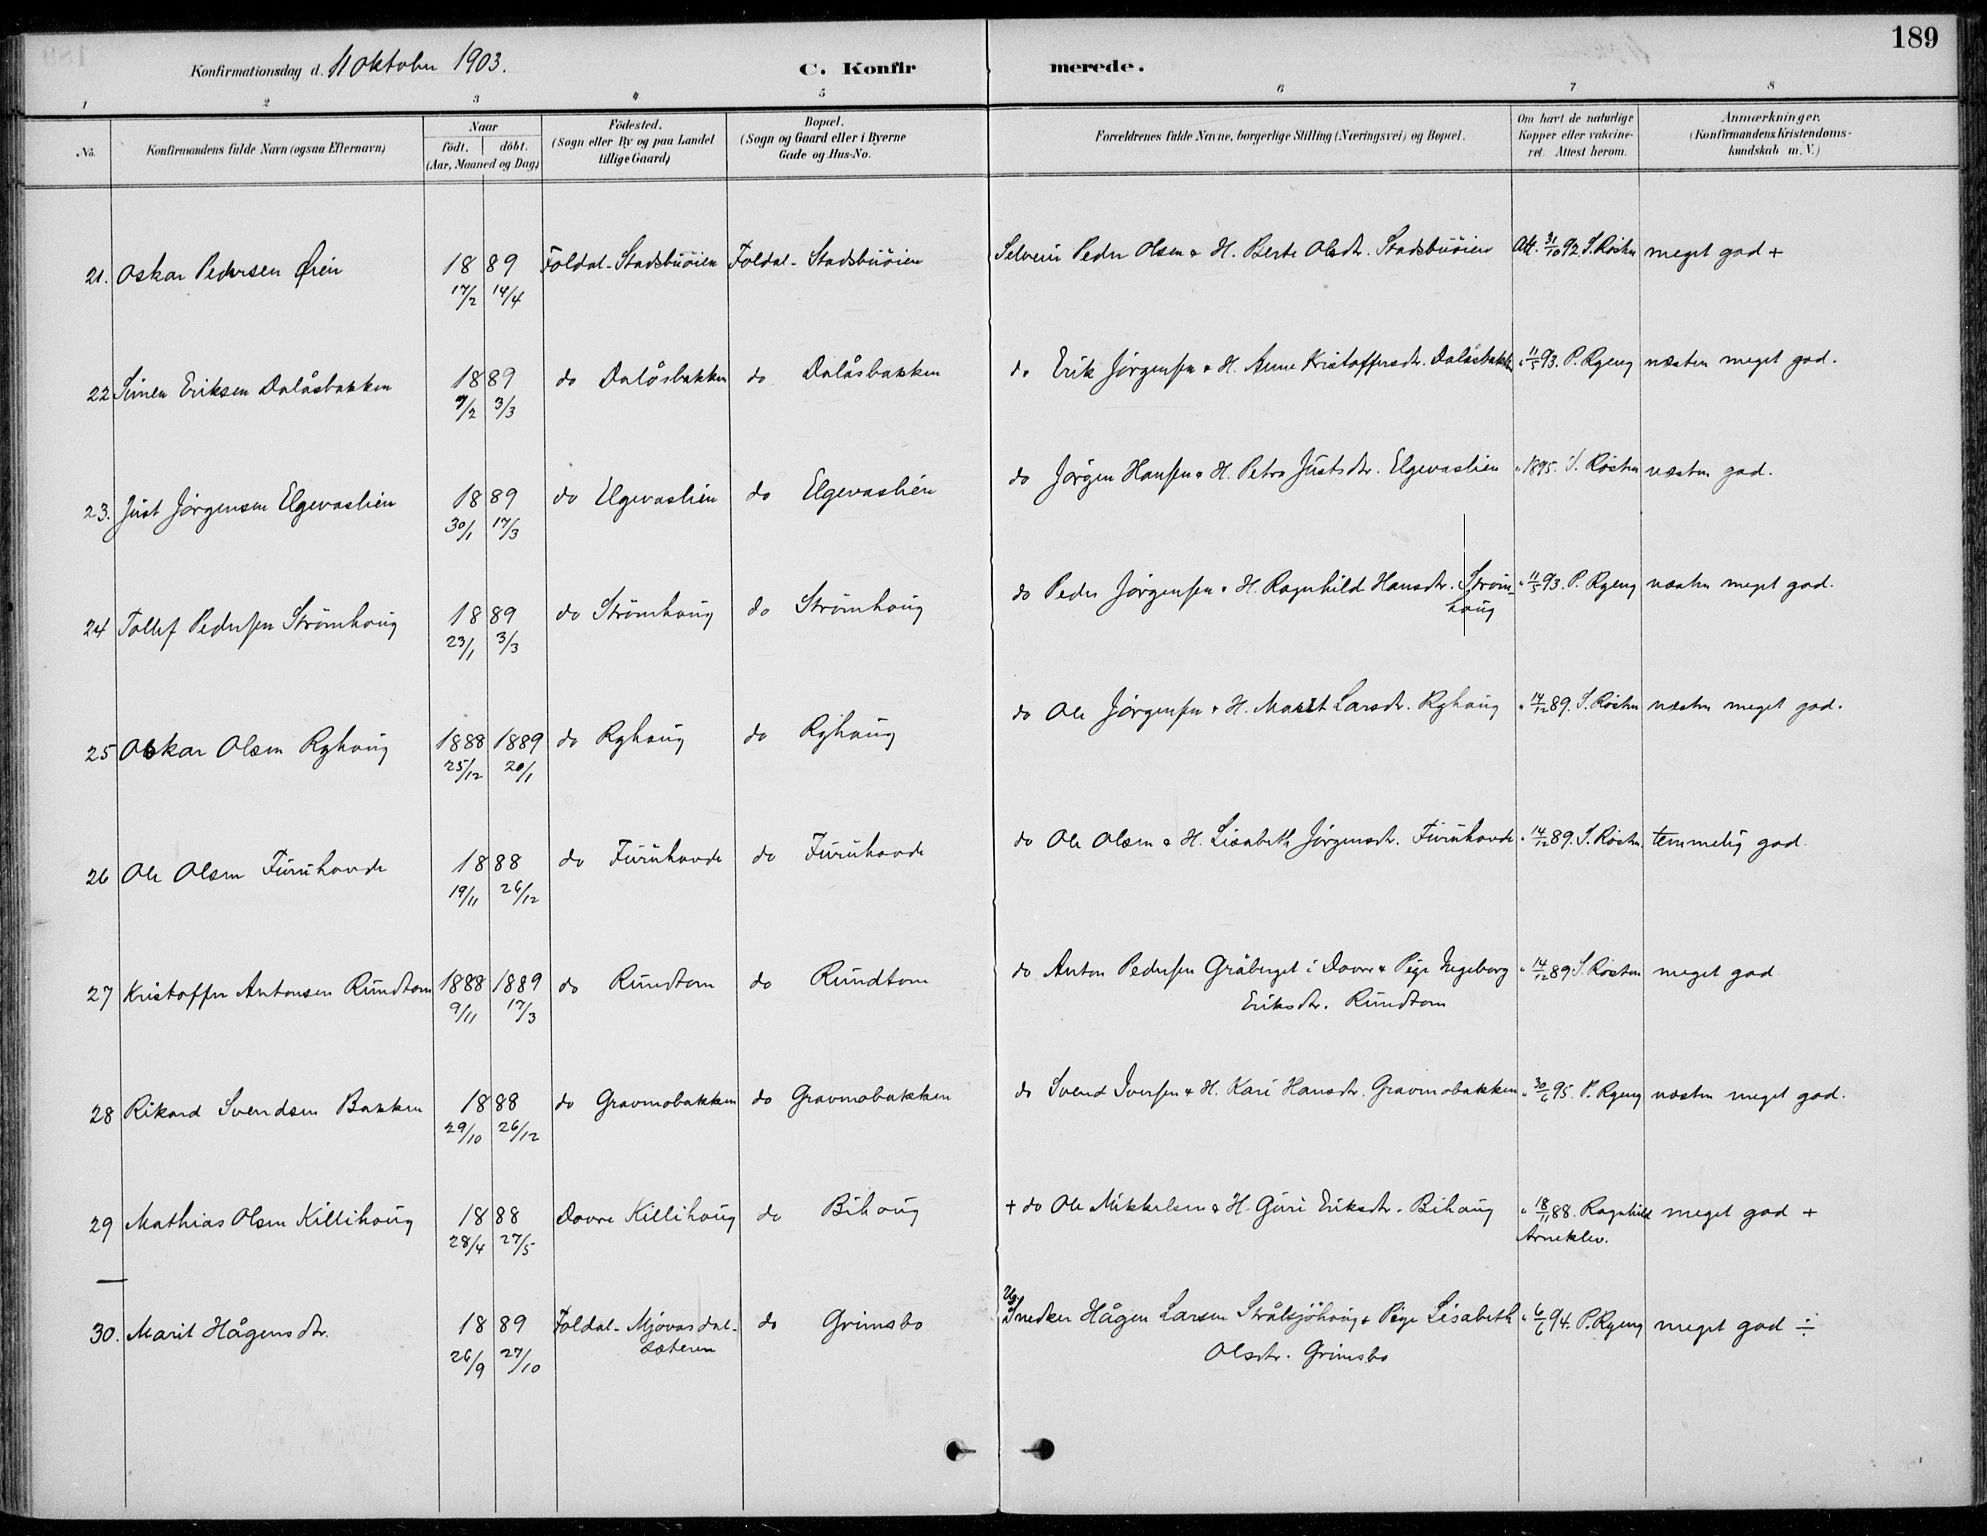 189
Konfirmationsdag d. 11 Oktober 1903. C. Konfirmerede.
1 2 3 4 5 6 7 8
No. Konfirmandens fulde Navn (ogsaa Efternavn) Naar født. døbt. (Aar, Maaned og Dag) Födested. (Sogn eller By og paa Landet tillige Gaard) Bopæl. (Sogn og Gaard eller i Byerne Gade og Hus-No. Forældrenes fulde Navne, borgerlige Stilling (Næringsvei) og Bopæl. Om havt de naturlige Kopper eller vakcineret. Attest herom. Anmærkninger. (Konfirmandens Kristendomskundskab m. V.)
21. Oskar Pedersen Øien 1889 Foldal-Stadsbuøien Foldal-Stadsbuøien Selveier Peder Olsen & H. Berte Olsdtr. Stadsbuøien Att. 31/10 92. S. Rösten meget god +
17/2 14/4
22 Simen Eriksen Dalåsbakken 1889 do Dalåsbakken do Dalåsbakken do Erik Jörgensen & H. Anne Kristoffersdtr. Dalåsbakken " 11/5 93. P. Ryeng næsten meget god.
9/2 3/3
23. Just Jörgensen Elgevaslien 1889 do Elgevaslien do Elgevaslien do Jörgen Hansen & H. Petra Justsdtr. Elgevaslien " 1895. S. Rösten næsten god.
30/1 17/3
24 Tollef Pedersen Strömhoug 1889 do Strömhoug do Strömhoug do Peder Jörgensen & H. Ragnhild Hansdtr. Ström-
houg " 11/5 93. P. Ryeng næsten meget god.
23/1 3/3
25 Oskar Olsen Ryhoug 1888 1889 do Ryhoug do Ryhoug do Ole Jörgensen & H. Marit Larsdtr. Ryhoug " 14/12 89. S. Rösten næsten meget god.
25/12 20/1
26 Ole Olsen Furuhovde 1888 do Furuhovde do Furuhovde do Ole Olsen & H. Lisabeth Jörgensdtr. Furuhovde " 14/12 89. S. Rösten. temmelig god.
19/11 26/12
27 Kristoffer Antonsen Rundtom 1888 1889 do Rundtom do Rundtom do Anton Pedersen Gråberget i Dovre & Pige Ingeborg
Eriksdtr. Rundtom " 14/12 89 S. Rösten meget god
9/11 17/3
28 Rikard Svendsen Bakken 1888 do Gravmobakken do Gravmobakken do Svend Iversen & H. Kari Hansdtr. Gravmobakken " 30/6 95. P. Ryeng næsten meget god.
29/10 26/12
29 Mathias Olsen Killihoug 1888 Dovre Killihoug do Bihoug + do Ole Mikkelsen & H. Guri Eriksdtr. Bihoug " 18/11 88. Ragnhild
Arneklev. meget god +
28/4 27/5
30. Marit Hågensdtr. 1889 Foldal-Mjovasdal-
sæteren do Grimsbo Ug.
Snedker Hågen Larsen Strålsjöhoug & Pige Lisabeth
Olsdtr. Grimsbo " 6/6 94. P. Ryeng meget god ÷
26/9 27/10